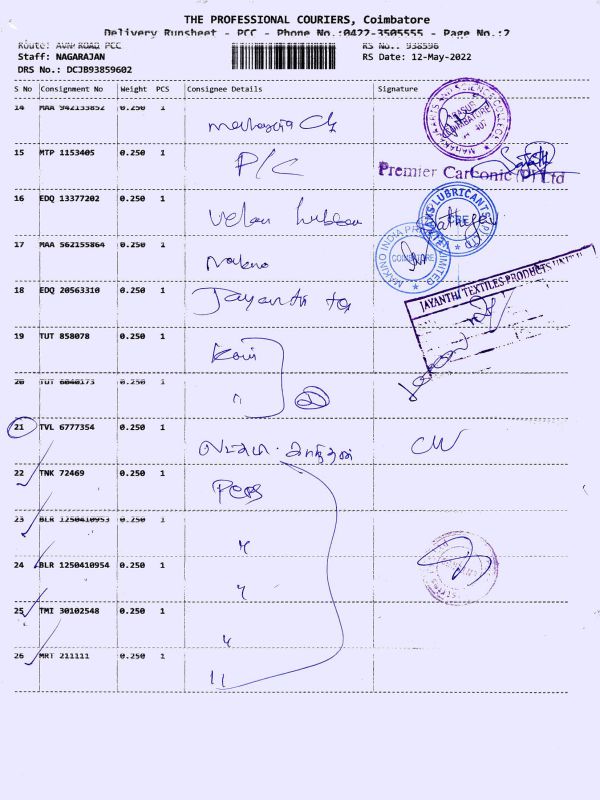 THE PROFESSIONAL COURIERS, Coimbatore
Delivery Runsheet - PCC - Phone No.:0422-3505555 - Page No.:2
Route: AVNP ROAD PCC
RS No.: 938596
Staff: NAGARAJAN
RS Date: 12-May-2022
DRS No.: DCJB93859602
S No Consignment No Weight PCS Consignee Details Signature
14 MAA 942133852 0.250 1
15 MTP 1153405 0.250 1 P/C
Premier CarConic (P) Ltd
16 EDQ 13377202 0.250 1
17 MAA 562155864 0.250 1 Makino
MAKINO INDIA PRIVATE LIMITED
COIMBATORE
18 EDQ 20563310 0.250 1 Jayanthi tex
JAYANTHI TEXTILES PRODUCTS UNIT II
19 TUT 858078 0.250 1
20 TUT 6040173 0.250 1 "
21 TVL 6777354 0.250 1
22 TNK 72469 0.250 1
23 BLR 1250410953 0.250 1 "
24 BLR 1250410954 0.250 1 "
25 TMI 30102548 0.250 1 "
26 MRT 211111 0.250 1 "